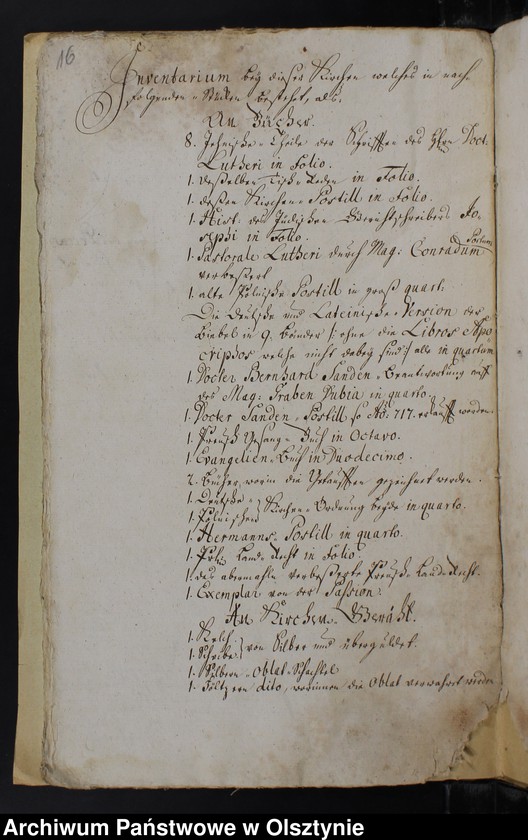 16
Inventarium bey dieser Kirchen welches in nach
folgenden Stücken bestehet, als.
An Bücher.
8. Jehnische Theile der Schrifften des Hrn Doct:
Lutheri in Folio.
1. deßelben Tisch-Reden in Folio.
1. deßen Kirchen-Postill in Folio.
1. Hist: des Jüdischen Geschichtschreibers Jo-
sephi in Folio.
1. Pastorale Lutheri durch Mag: Conradum Portum
verbeßert
1. alte Polnische Postill in groß quart.
Die Deutsche und Lateinische Version der
Biebel in 9. Bänder /: ohne die Libros Apo
cryphos welche nicht dabey sind :/ alle in quartum
1. Docter Bernhard Sanden Beantwortung auff
des Mag: Graben Dubia in quarto.
1. Docter Sanden Postill so Aō: 717. erkaufft worden.
1. Preusch Gesang-Buch in Octavo.
1. Evangelien-Buch in Duodecimo.
2. Bücher, worin die Getaufften gezeichnet werden.
1. Deutsche
1. Polnischen Kirchen-Ordnung beyde in quarto.
1. Hermanns Postill in quarto.
1. Land-Recht in Folio.
1. das abermahls verbeßerte Preusch. Land-Recht.
1. Exemplar von der Passion.
An Kirchen-Geräht.
1. Kelch
1. Scheibe von Silber und übergüldet.
1. Silbern Oblat-Schachtel
1. Höltzern dito, worinnen die Oblat verwahret werden
Archiwum Państwowe w Olsztynie